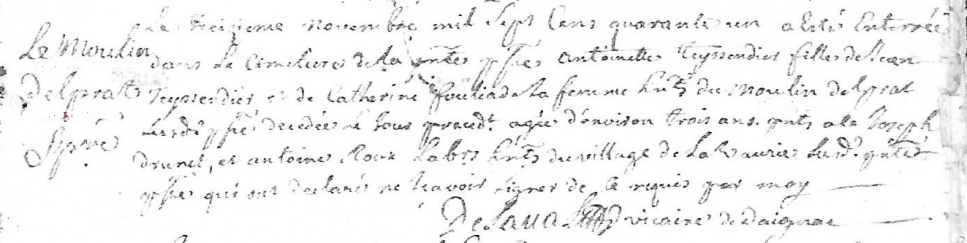 Le treizieme novembre mil sept cens quarante un a eté enterrée
Le Moulin dans le cimetiere de la pnte psse antoinette Teyssendier fille de Jean
Delprat Teyssedier et de Catherine sa femme hnts du moulin delprat
Spre psse decedée le jour preced. agée d'environ trois ans. pnts a la Joseph
drunet, et antoine Roux labrs hnts du village de Lavaurie susd. pnte
psse qui ont declaré ne scavoir signer de ce requis par moy
DeLaval vicaire de daignac